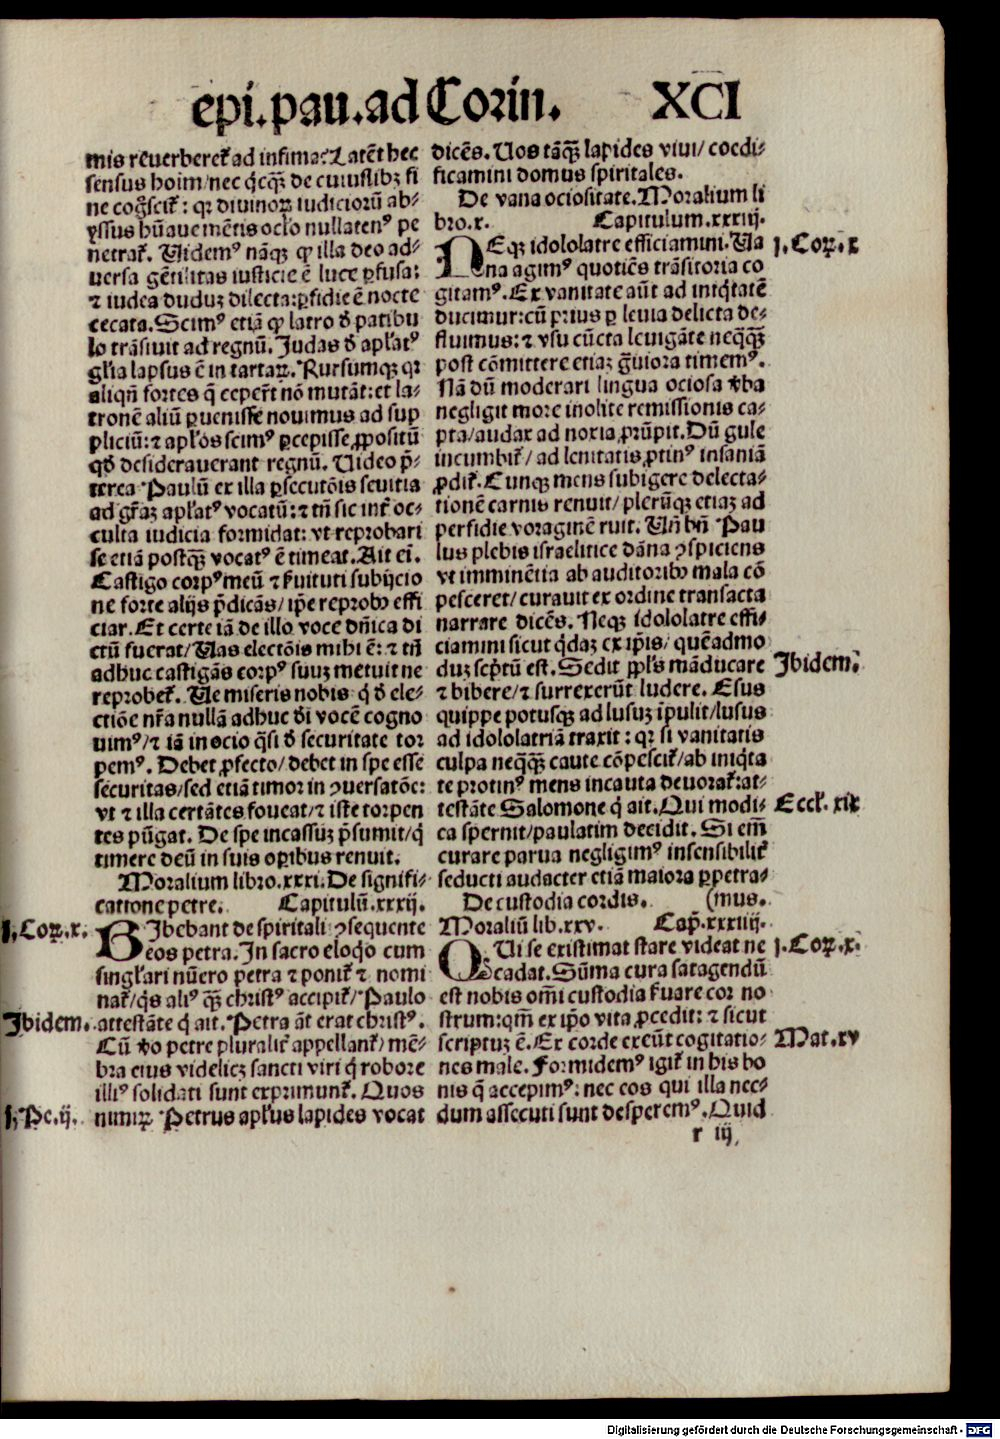 epi. pau. ad Corin. XCI
mis reuerberet᷑ ad infima: Latēt hec
sensus hoim/nec q̇cq̄ꝫ de cuiuslibꝫ fi
ne coḡscit᷑: qꝛ diuinoꝝ iudicioꝛū ab⸗
yssus hūane mētis ocl̓o nullatenꝰ pe
netrat᷑. Uidemꝰ nāqꝫ qꝙ illa deo ad⸗
uersa gētilitas iusticie ē luce ꝑfusa:
⁊ iudea duduꝫ dilecta: ꝑfidie ē nocte
cecata. Scimꝰ etiā ꝙ latro đ patibu
lo trāsiuit ad regnū. Judas đ apl̓atꝰ
gl̓ia lapsus ē in tartaꝝ. Rursumqꝫ qꝛ
aliqn̄ sortes q̄ ceper̄t nō mutāt: et la⸗
tronē aliū ꝑuenisse nouimus ad sup
pliciū: ⁊ apl̓os scimꝰ ꝑcepisse ꝓpositū
qđ desiderauerant regnū. Uideo p̄⸗
terea Paulū ex illa ꝑsecutōis seuitia
ad gr̄aꝫ apl̓atꝰ vocatū: ⁊ tn̄ sic int᷑ oc⸗
culta iudicia formidat: vt reprobari
se etiā postq̄ꝫ vocatꝰ ē timeat. Ait ei̓.
Castigo corpꝰ meū ⁊ s̓uituti subijcio
ne forte alijs p̄dicās/ ip̄e reprobꝰ effi
ciar. Et certe iā de illo voce dn̄ica di
ctū fuerat/ Uas electōis mihi ē: ⁊ tn̄
adhuc castigās corpꝰ suuꝫ metuit ne
reprobet᷑. Ue miseris nobis q̇ đ ele⸗
ctiōe nr̄a nullā adhuc dei vocē cogno
uimꝰ/⁊ iā in ocio q̄si đ securitate tor
pemꝰ. Debet ꝓfecto/ debet in spe esse
securitas/sed etiā timor in ꝯuersatōe:
vt ⁊ illa certātes foueat/⁊ iste torpen
tes pūgat. De spe incassuꝫ p̄sumit/q̇
timere deū in suis oꝑibus renuit.
Moralium libro. xxxi. De signifi⸗
catione petre. Capitulū. xxxij.
j. Coꝝ. x. BIbebant de spiritali ꝯsequente
eos petra. In sacro eloq̇o cum
singl̓ari nūero petra ⁊ ponit᷑ ⁊ nomi
nat᷑/q̇s aliꝰ q̄ꝫ christꝰ accipit᷑/Paulo
Jbidem. attestāte q̇ ait. Petra āt erat christꝰ.
Cū v̓o petre pluralit᷑ appellant᷑/mē⸗
bra eius videlicꝫ sancti viri q̇ robore
illiꝰ solidati sunt exprimunt᷑. Quos
j. Pe. ij. nimiꝝ Petrus apl̓us lapides vocat
dicēs. Uos tāq̄ꝫ lapides viui/ coedi⸗
ficamini domus spiritales.
De vana ociositate. Moralium li
bro. x. Capitulum. xxxiij.
NEqꝫ idololatre efficiamini. Ua j. Coꝝ. x
na agimꝰ quotiēs trāsitoria co
gitamꝰ. Ex vanitate aūt ad iniq̇tatē
ducimur: cū prius ꝑ leuia delicta de⸗
fluimus: ⁊ vsu cūcta leuigāte neq̄q̄ꝫ
post cōmittere etiaꝫ g̓uiora timemꝰ.
Nā dū moderari lingua ociosa v̓ba
negligit more inolite remissionis ca⸗
pta/audax ad noxia ꝓrūpit. Dū gule
incumbit᷑/ ad lenitatis ꝓtinꝰ insaniā
ꝓdit᷑. Cunqꝫ mens subigere delecta⸗
tionē carnis renuit/ plerūqꝫ etiaꝫ ad
perfidie voraginē ruit. Un̄ bn̄ Pau
lus plebis israelitice dāna ꝯspiciens
vt imminētia ab auditoribꝰ mala cō
pesceret/ curauit ex ordine transacta
narrare dicēs. Neqꝫ idololatre effi⸗
ciamini sicut q̇daꝫ ex ip̄is/ quēadmo
duꝫ scp̄tū est. Sedit ppl̓s māducare Jbidem.
⁊ bibere/⁊ surrexerūt ludere. Esus
quippe potusqꝫ ad lusuꝫ īpulit/lusus
ad idololatriā traxit: qꝛ si vanitatis
culpa neq̄q̄ꝫ caute cōpescit᷑/ab iniq̇ta
te protinꝰ mens incauta deuorat᷑: at⸗
testāte Salomone q̇ ait. Qui modi⸗ Eccl̓. xix
ca spernit/paulatim decidit. Si em̄
curare parua negligimꝰ insensibilit᷑
seducti audacter etiā maiora ꝑpetra⸗
De custodia cordis. (mus.
Moraliū lib. xxv. Cap̄. xxxiiij.
QUi se existimat stare videat ne j. Coꝝ. x.
cadat. Sūma cura satagendū
est nobis om̄i custodia s̓uare cor no
strum: qm̄ ex ip̄o vita ꝓcedit: ⁊ sicut
scriptuꝫ ē. Ex corde exeūt cogitatio⸗ Mat. xv
nes male. Formidemꝰ igit᷑ in his bo
nis q̄ accepimꝰ: nec eos qui illa nec⸗
dum assecuti sunt desperemꝰ. Quid
r iij
Digitalisierung gefördert durch die Deutsche Forschungsgemeinschaft - DFG